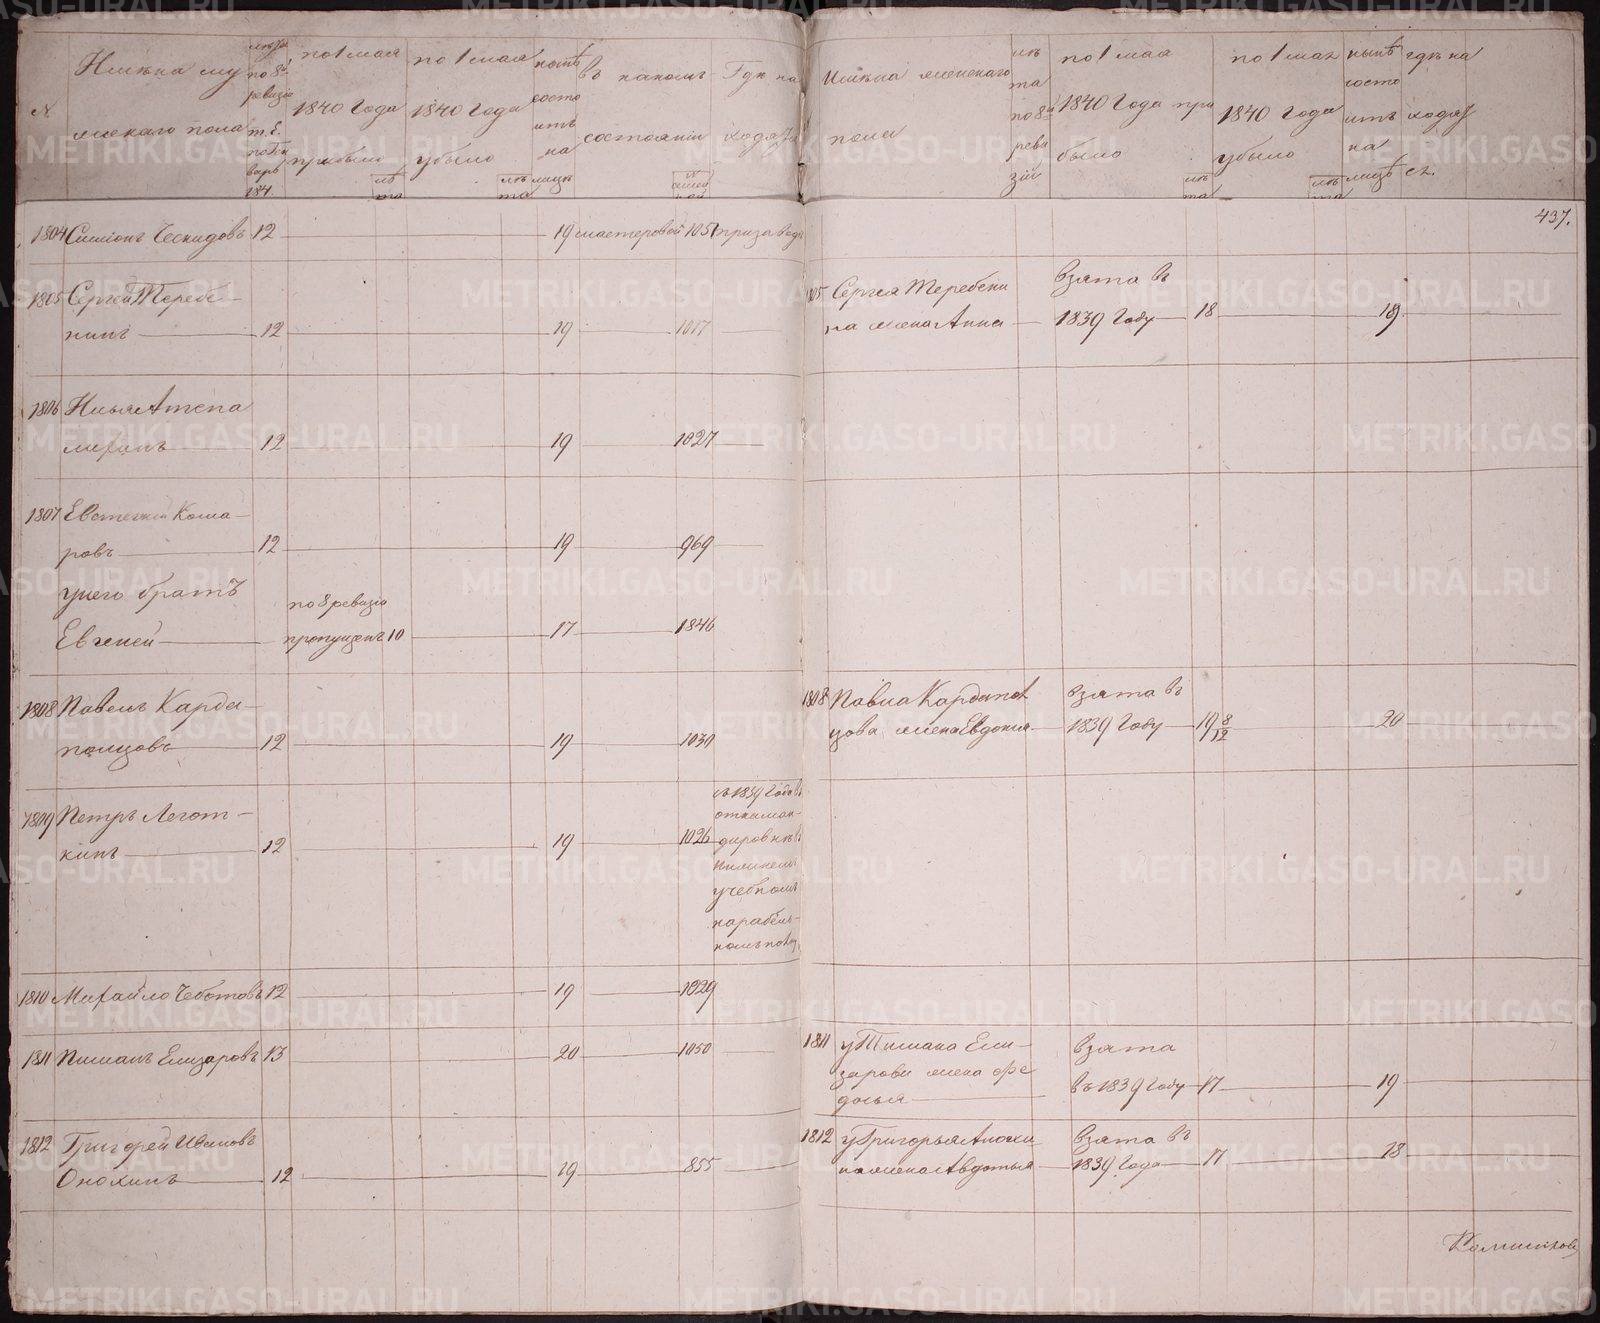 N
Имѣна му
жскаго пола
по 8й
ревизіи
по 1 мая
1840 года
прибыло
лѣ
та
по 1 мая
1840 года
убыло
лѣ
та
нынѣ
состо
итъ
на
лицѣ
въ какомъ
состояніи
Где на
ходя
Имѣна женскаго
пола
лѣ
та
по 8й
реви
зіи
по 1 мая
1840 года при
было
лѣ
та
по 1 мая
1840 года
убыло
лѣ
та
нынѣ
состо
итъ
на
лицѣ
гдѣ на
ходя
437.
1804 Симіонъ Ческидовъ 12 19 мастеровой 1051
1805 Сергей Теребе-
нинъ 12 19 1017
1805 Сергея Теребени
на жена Анна
взята въ
1839 году 18 19
1806 Илья Атепа
лихинъ 12 19 1027
1807 Евстегней Кома-
ровъ 12 19 969
у него братъ
Евгеней
по 8 ревизіи
пропущенъ 10 17 1846
1808 Павелъ Карда
полцовъ 12 19 1031
1808 Павла Кардапол
цова жена Евдокия
взята въ
1839 году 19 8/12 20
1809 Петръ Легот-
кинъ 12 19 1026
съ 1839 года въ
откоман-
дировкѣ въ
учебномъ
карабель-
1810 Михайло Чеботовъ 12 19 1029
1811 Пиманъ Елизаровъ 13 20 1050
1811 у Пимана Ели-
зарова жена Фе
досья
взята
въ 1839 году 17 19
1812 Григорей Ивановъ
Онохинъ 12 19 855
1812 у Григорья Анохи
на жена Авдотья
взята въ
1839 года 17 18
METRIKI.GASO-URAL.RU